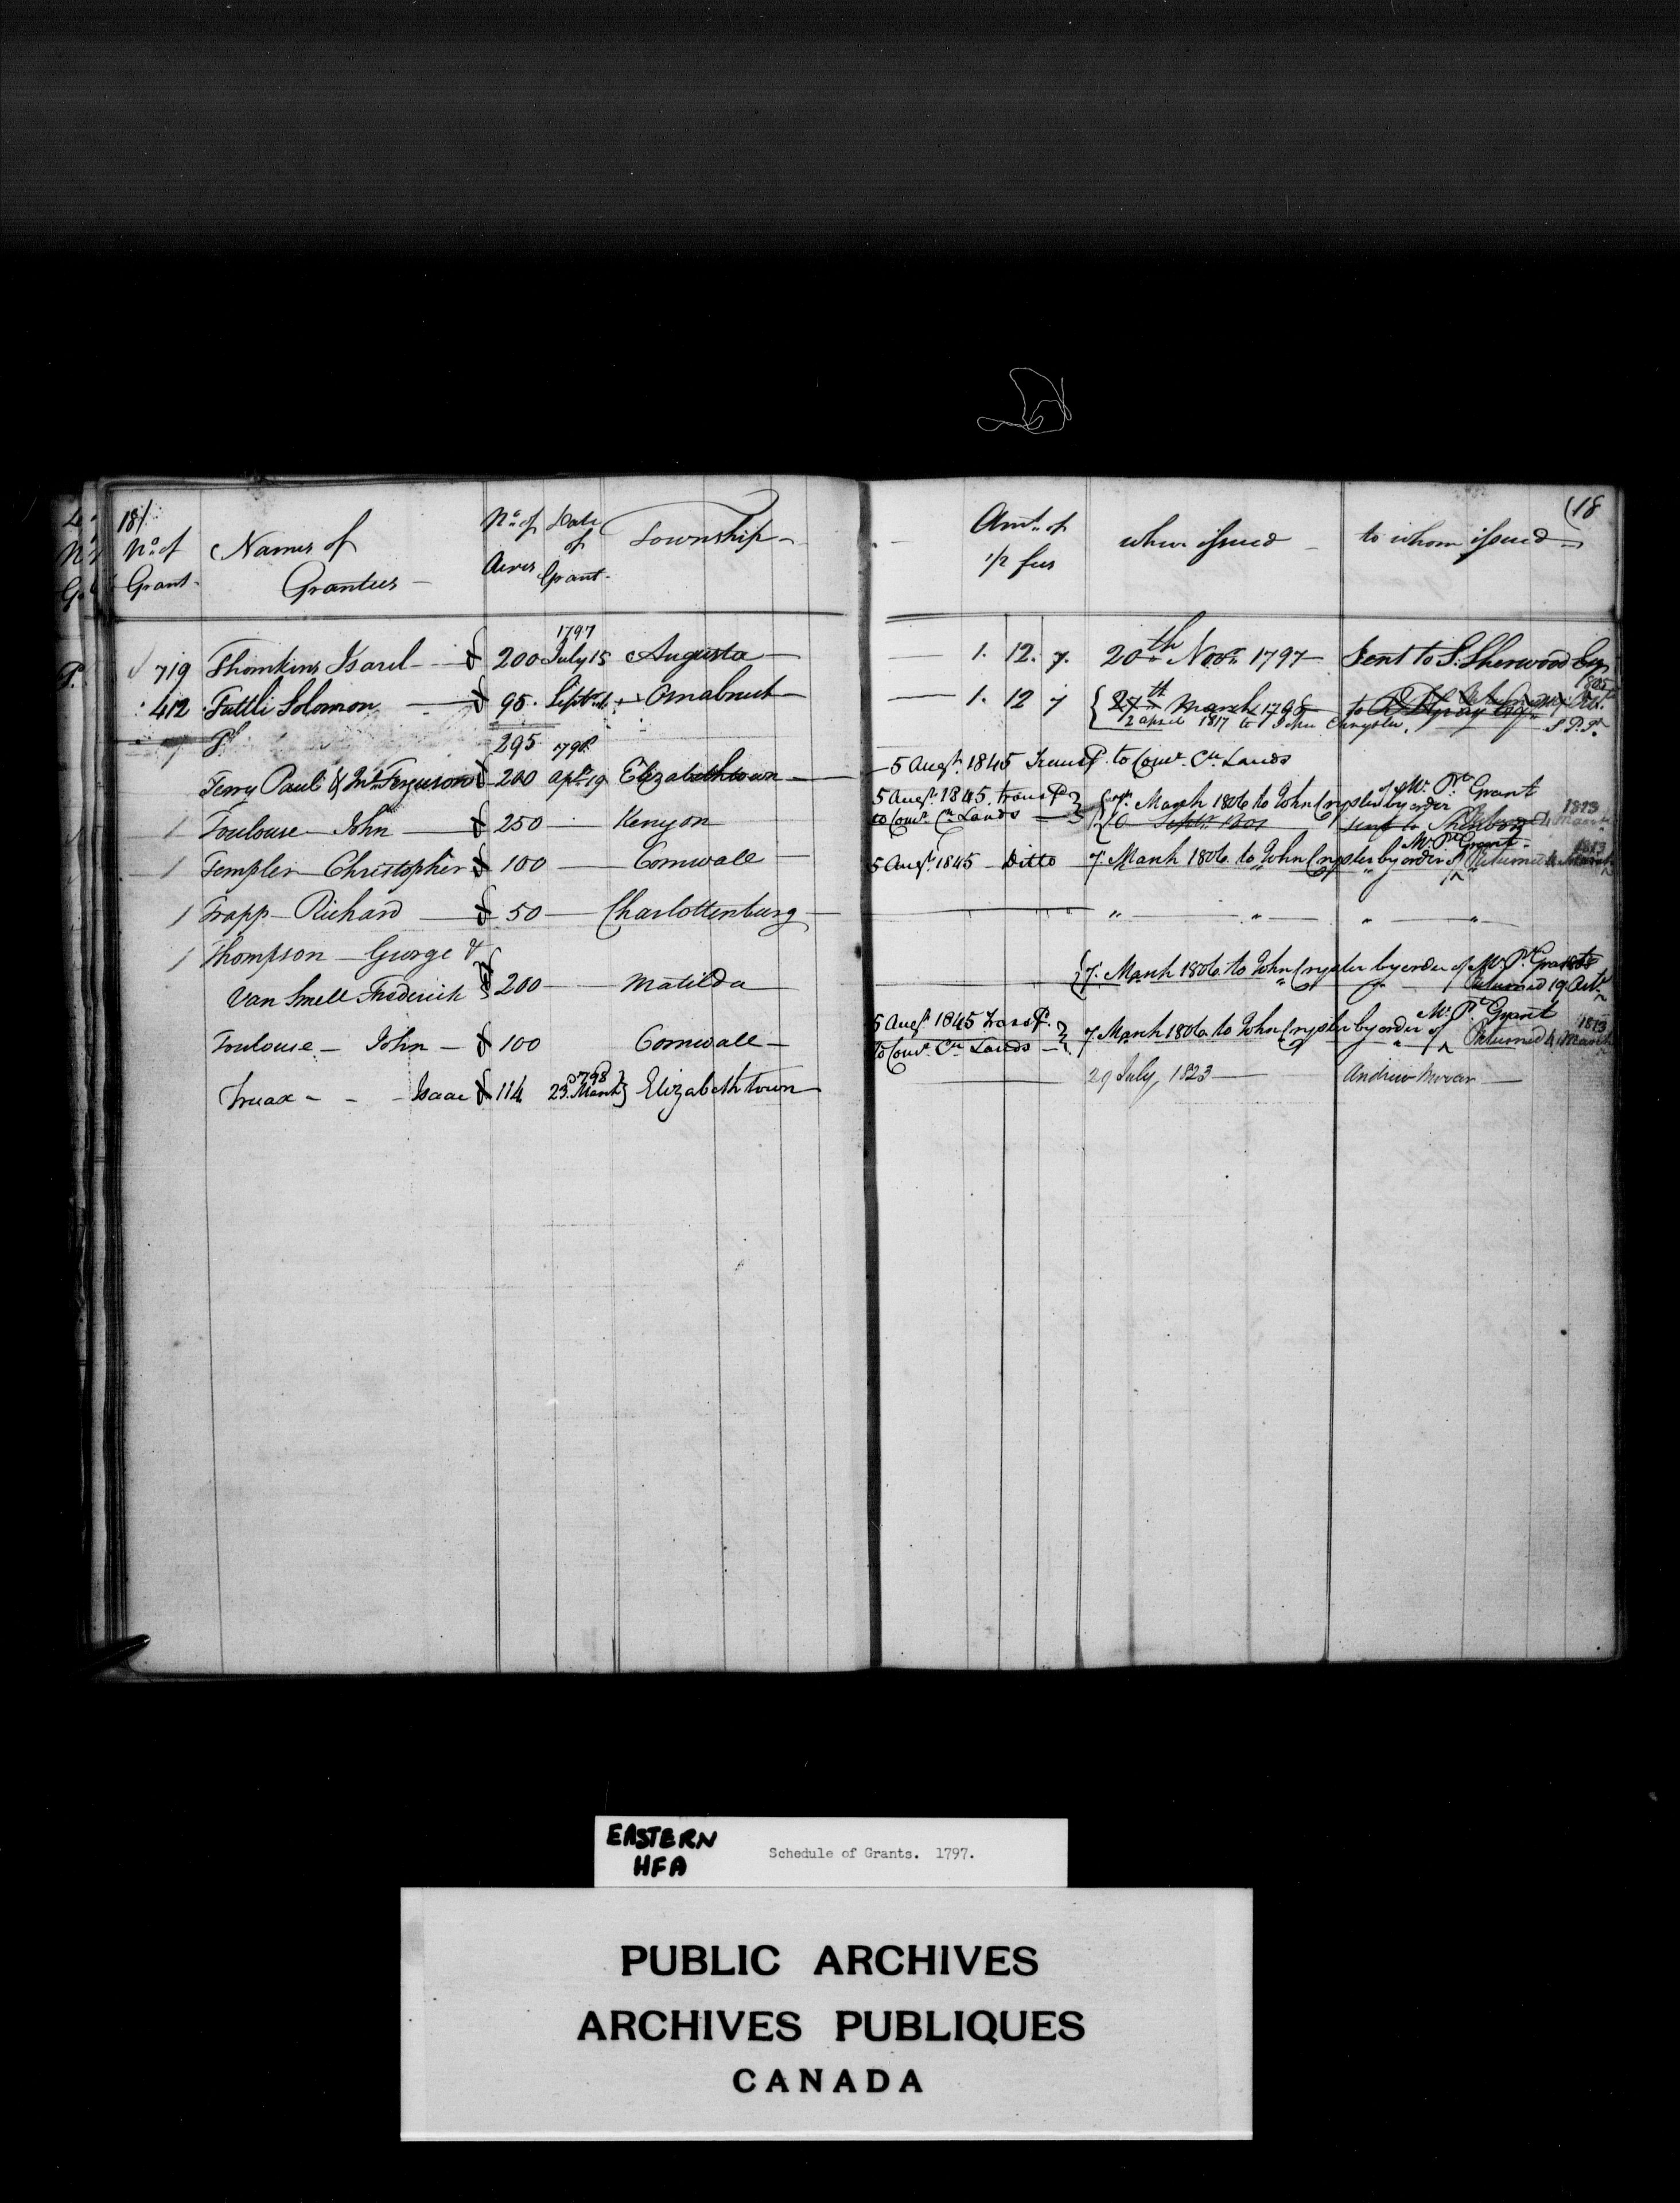 18/
No. of Grant
Names of Grantees
No. of Acres
Date of Grant
Township
719 Thomkins Isarel 200 1797 July 15 Augusta
412 Tuttle Solomon 95 Septr. Osnabruck
295 1798
Terry Paul & Jno. Ferguson 200 Apl. 19 Elizabethtown
1 Toulouse John 250 Kenyon
1 Templer Christopher 100 Cornwall
1 Trapp Richard 50 Charlottenburg
1 Thompson George &
Van Smell Frederick 200 Matilda
Toulouse John 100 Cornwall
Truax Isaac 114 1798 23 March Elizabethtown
(18
Amt. of 1/2 fees
when issued
to whom issued
1. 12. 7. 20th Novr. 1797 Sent to S. Sherwood Esq
1. 12 7 27th March 1798 to
2 April 1817 to John Chrysler.
5 Augt. 1845 Transf. to Comr. Cn. Lands
5 Augt. 1845. transf. to Comr. Cn. Lands 7. March 1806 to John Crysler by order of Mr. Pt. Grant
10 Septr. 1801 sent to 4 March 1813
5 Augt. 1845 Ditto 7. March 1806. to John Crysler by order of Mr. Pt. Grant Returned 4 March 1813
" " " "
7. March 1806. to John Crysler by order of Mr. Pt. Grant
Returned 19 Octr.
5 Augt. 1845 Transf. to Comr. Cn. Lands 7. March 1806 to John Crysler by order of Mr. Pt. Grant Returned 4 March 1813
29 July, 1823 Andrew
EASTERN
HFA
Schedule of Grants. 1797.
PUBLIC ARCHIVES
ARCHIVES PUBLIQUES
CANADA